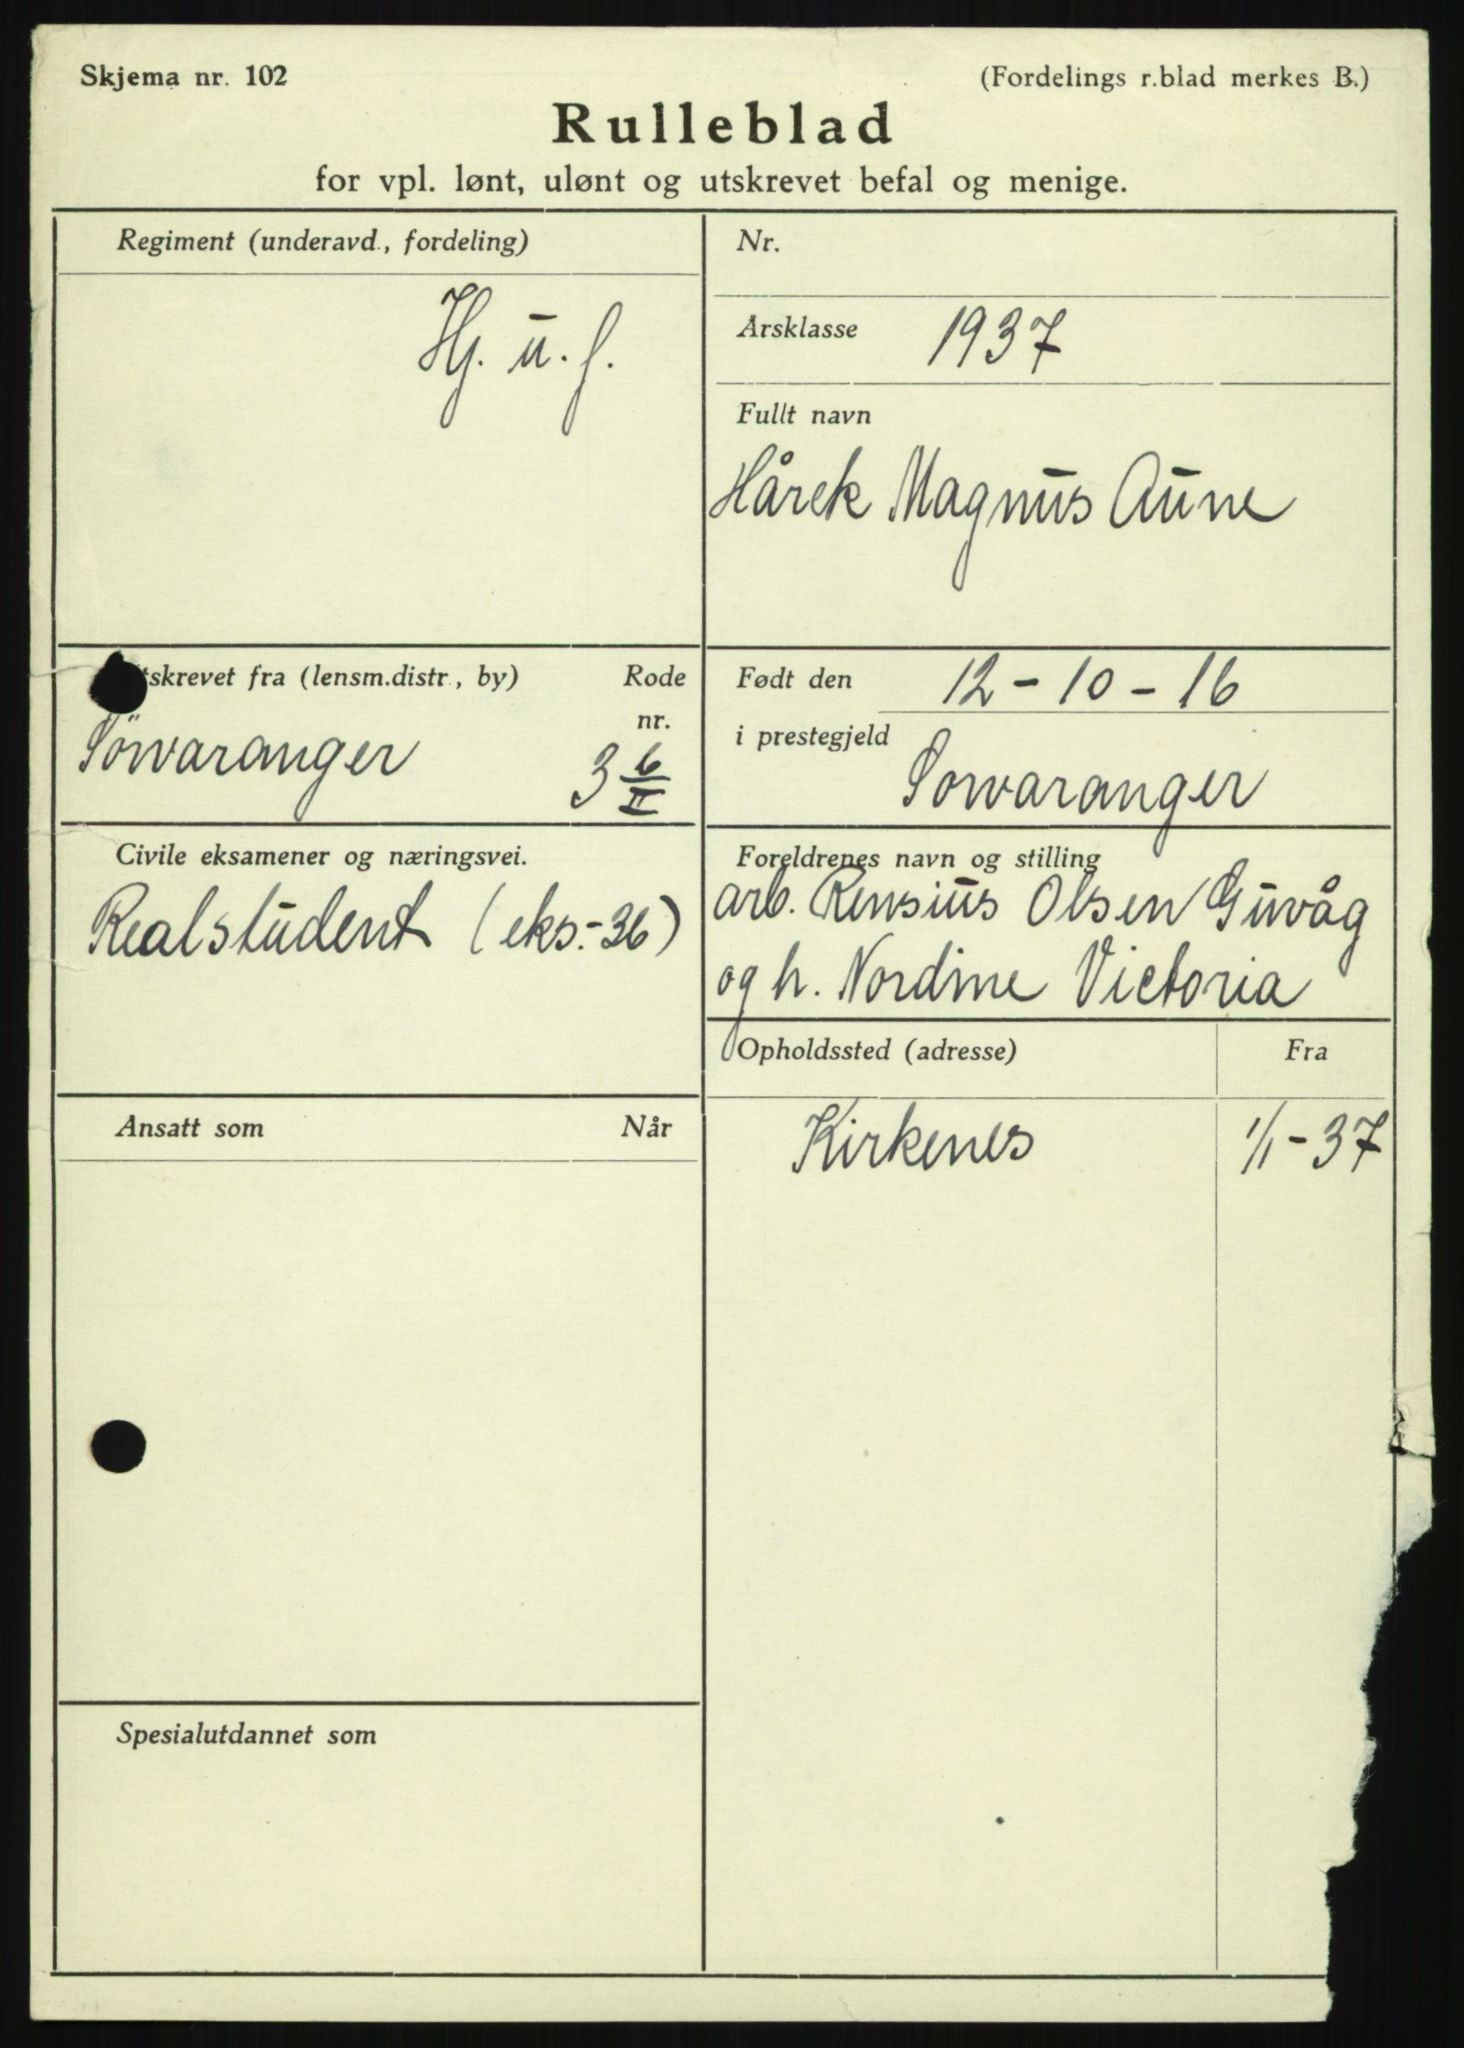 Skjema nr. 102
(Fordelings r.blad merkes B.)
Rulleblad
for vpl. lønt, ulønt og utskrevet befal og menige.
Regiment (underavd., fordeling)
Hj. u. f.
Nr.
Årsklasse 1937
Fullt navn
Hårek Magnus Aune
tskrevet fra (lensm.distr., by)
Rode
nr.
Sörvaranger
3 6/II
Født den 12-10-16
i prestegjeld
Sorvaranger
Civile eksamener og næringsvei.
Realstudent (eks.-36)
Foreldrenes navn og stilling
arb. Rensius Olsen Guvåg
og h. Nordine Victoria
Opholdssted (adresse)
Fra
Kirkenes
1/1-37
Ansatt som
Når
Spesialutdannet som